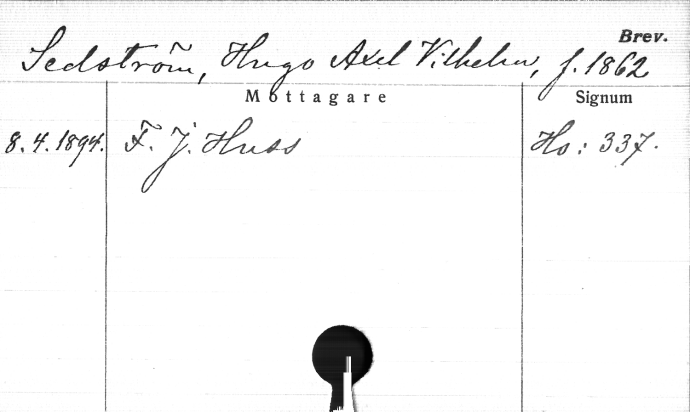 Brev.
Sedström, Hugo Axel Vilhelm, f. 1862
Mottagare Signum
8.4.1894. F. J. Huss Ho: 337.